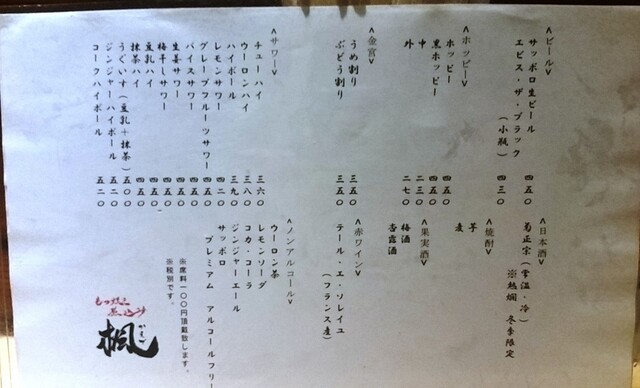 <ビール>
サッポロ生ビール 四五〇
エビス・ザ・ブラック(小瓶) 四三〇
<ホッピー>
ホッピー 四五〇
黒ホッピー 四五〇
中 二三〇
外 二七〇
<金宮>
うめ割り 三五〇
ぶどう割り 三五〇
<サワー>
チューハイ 三六〇
ウーロンハイ 三八〇
ハイボール 三九〇
レモンサワー 四二〇
グレープフルーツサワー 四五〇
バイスサワー 四五〇
生姜サワー 四五〇
梅干しサワー 四五〇
豆乳ハイ 四五〇
抹茶ハイ 四五〇
うぐいす(豆乳+抹茶) 五〇〇
ジンジャーハイボール 五二〇
コークハイボール 五二〇
<日本酒>
菊正宗(常温・冷)
※熱燗 冬季限定
<焼酎>
芋
麦
<果実酒>
梅酒
杏露酒
<赤ワイン>
テール・エ・ソレイユ
(フランス産)
<ノンアルコール>
ウーロン茶
レモンソーダ
コカ・コーラ
ジンジャーエール
サッポロ
プレミアム アルコールフリー
※席料一〇〇円頂戴致します。
※税別です。
もつ焼き
煮込み
楓